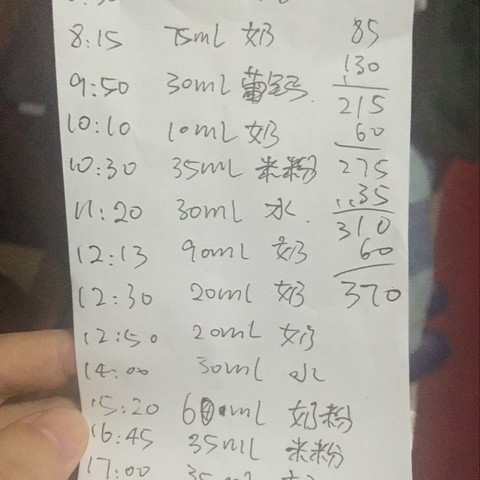 8:15 75ml 奶 85
130
9:50 30ml 葡萄 215
10:10 10ml 奶 60
10:30 35ml 米粉 275
35
11:20 30ml 水. 310
12:13 90ml 奶 60
12:30 20ml 奶 370
12:50 20ml 奶
14:00 30ml 水
15:20 60ml 奶粉
16:45 35ml 米粉
17:00 35ml